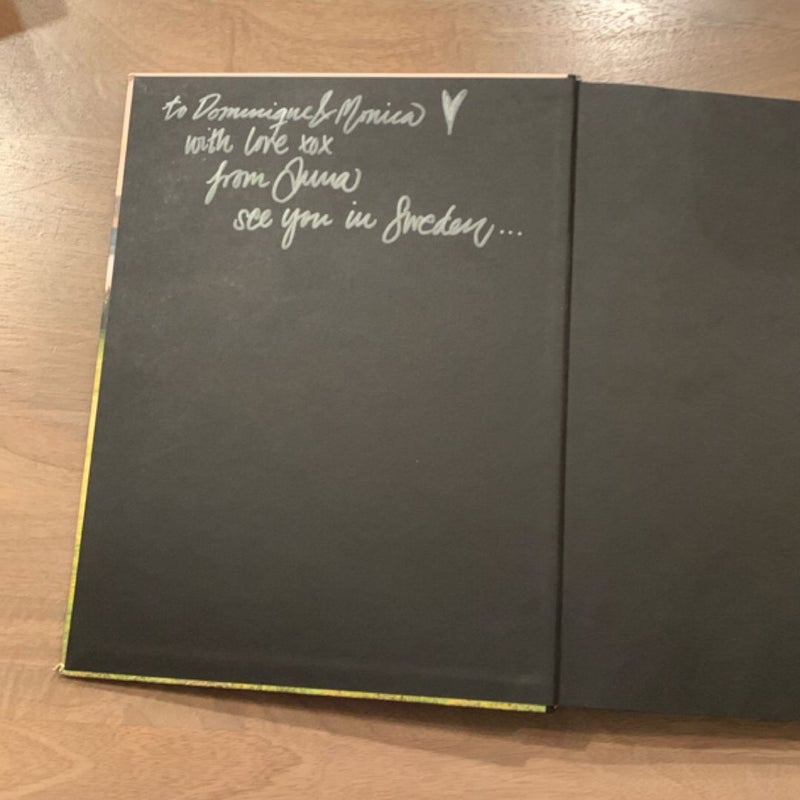 to Dominique & Monica ♥
with love xox
from Anna
see you in Sweden...